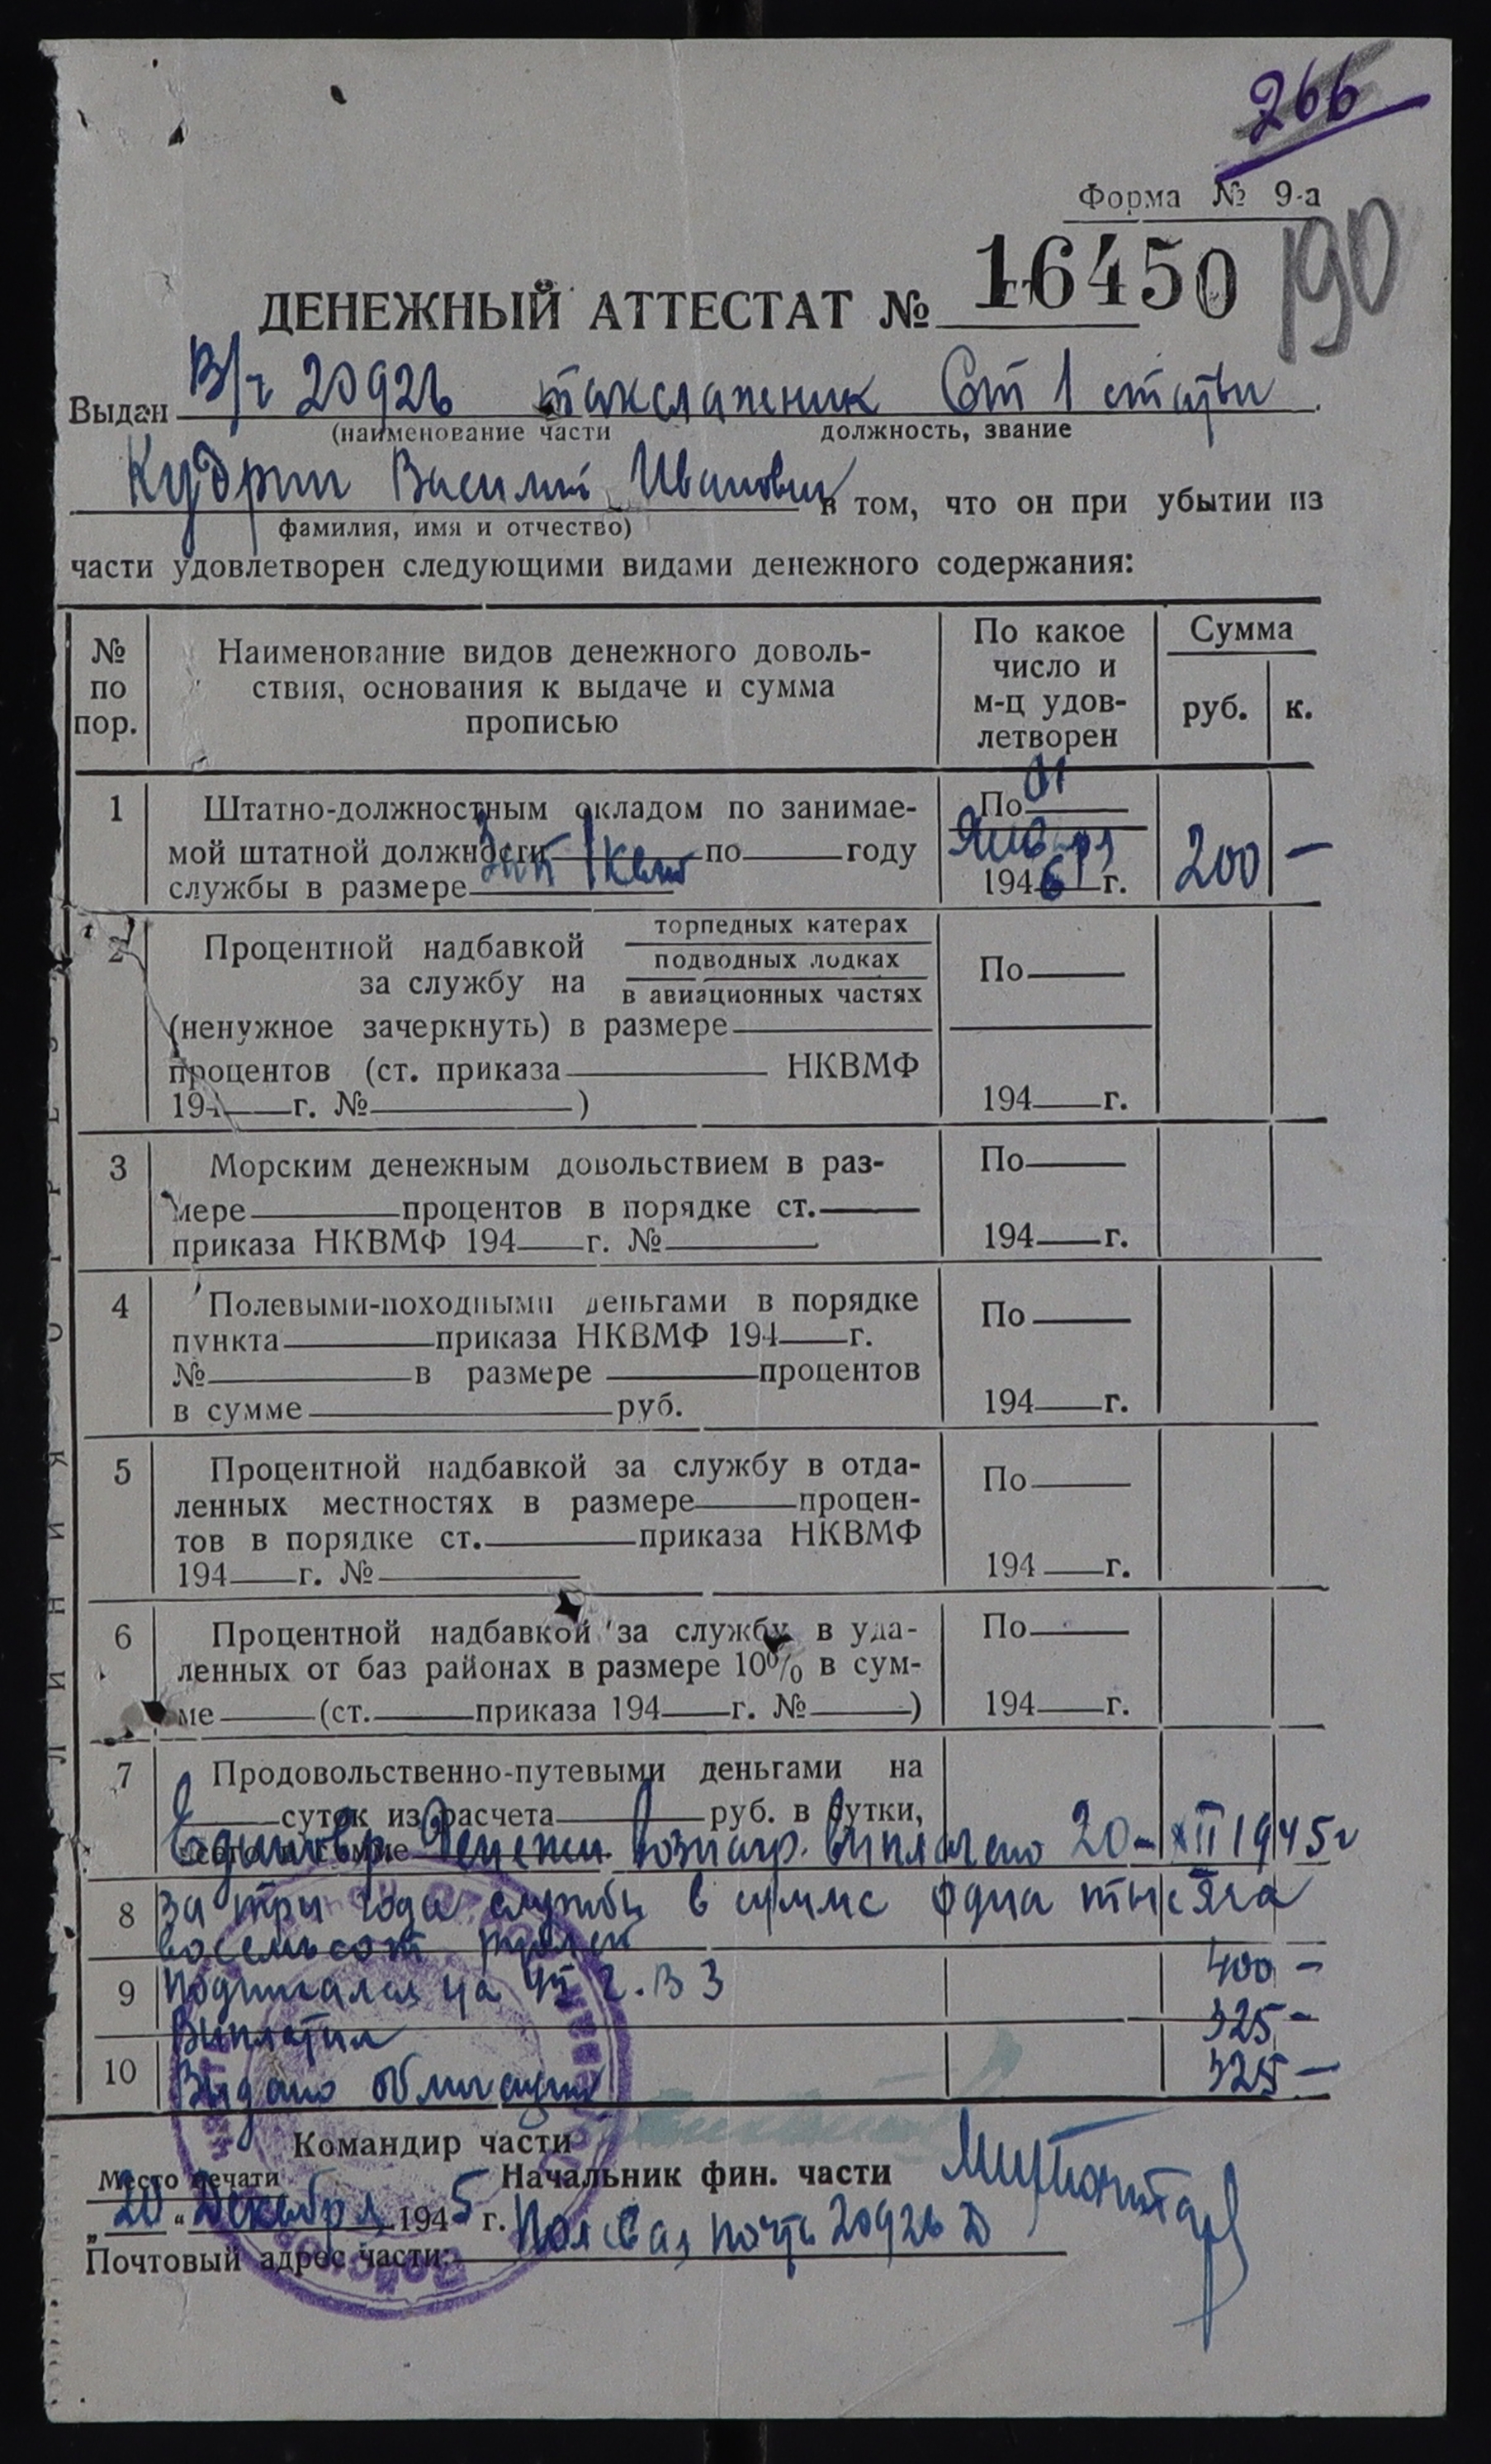 266
Форма № 9-а
190
ДЕНЕЖНЫЙ АТТЕСТАТ № 16450
Выдан В/ч 20926 такелажник Ст 1 статьи
(наименование части должность, звание
Кудрин Василий Иванович в том, что он при убытии из
фамилия, имя и отчество)
части удовлетворен следующими видами денежного содержания:
№ по пор.
Наименование видов денежного доволь-
ствия, основания к выдаче и сумма
прописью
По какое
число и
м-ц удов-
летворен
Сумма
руб. к.
1 Штатно-должностным окладом по занимае-
мой штатной должности по году
службы в размере
По 01
Января
1946 г.
200 —
2 Процентной надбавкой
за службу на
торпедных катерах
подводных лодках
в авиационных частях
(ненужное зачеркнуть) в размере
процентов (ст. приказа НКВМФ
194 г. № )
По
194 г.
3 Морским денежным довольствием в раз-
мере процентов в порядке ст.
приказа НКВМФ 194 г. №
По
194 г.
4 Полевыми-походными деньгами в порядке
пункта приказа НКВМФ 194 г.
№ в размере процентов
в сумме руб.
По
194 г.
5 Процентной надбавкой за службу в отда-
ленных местностях в размере процен-
тов в порядке ст. приказа НКВМФ
194 г. №
По
194 г.
6 Процентной надбавкой за службу в уда-
ленных от баз районах в размере 10% в сум-
ме (ст. приказа 194 г. № )
По
194 г.
7 Продовольственно-путевыми деньгами на
суток из расчета руб. в сутки,
всего в сумме
Единовр. Денежн. вознагр. выплачено 20-XII 1945г
8 За три года службы в сумме одна тысяча
восемьсот рублей
9 Подписался на 45 г. В З 400 —
Выплатил 325 —
10 Выдано облигации 325 —
Командир части
Место печати Начальник фин. части
„20“ Декабря 1945 г. Полевая почта 20926 Д
Почтовый адрес части:
ЛИНИЯ ОТРЕЗА